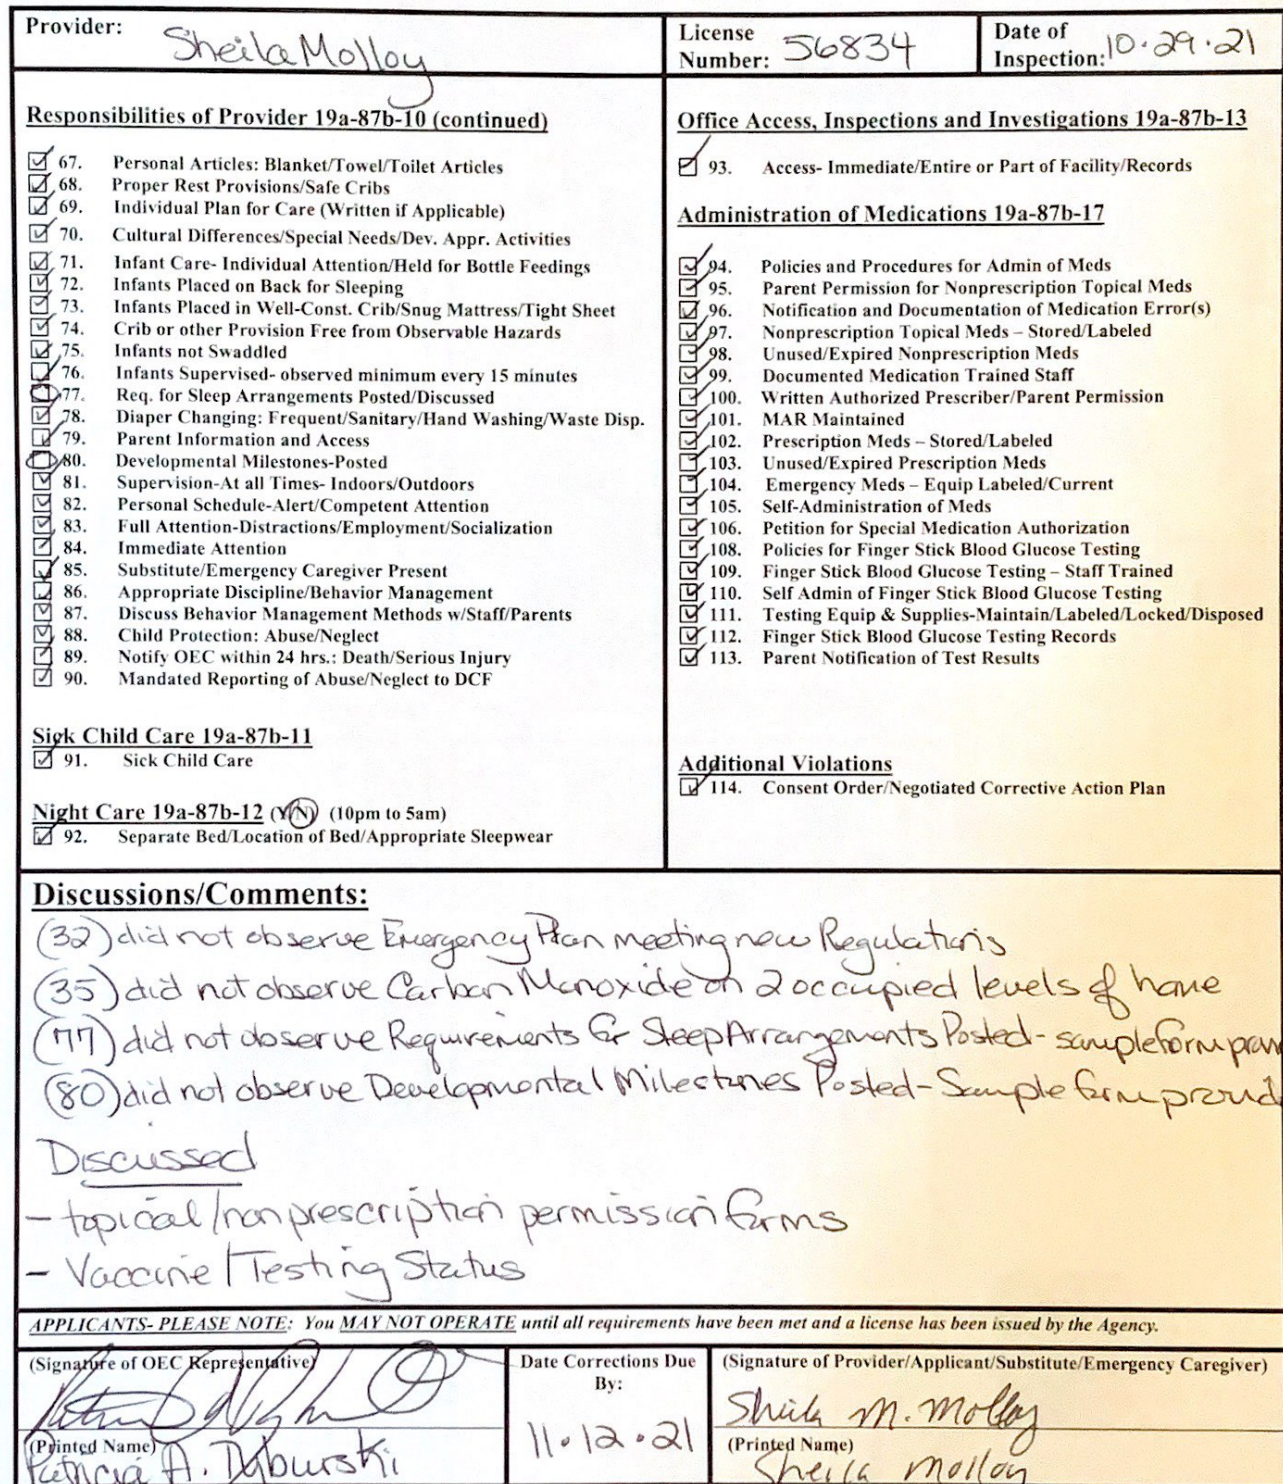 Provider: Sheila Molloy
License Number: 56834
Date of Inspection: 10.29.21
Responsibilities of Provider 19a-87b-10 (continued)
67. Personal Articles: Blanket/Towel/Toilet Articles
68. Proper Rest Provisions/Safe Cribs
69. Individual Plan for Care (Written if Applicable)
70. Cultural Differences/Special Needs/Dev. Appr. Activities
71. Infant Care- Individual Attention/Held for Bottle Feedings
72. Infants Placed on Back for Sleeping
73. Infants Placed in Well-Const. Crib/Snug Mattress/Tight Sheet
74. Crib or other Provision Free from Observable Hazards
75. Infants not Swaddled
76. Infants Supervised- observed minimum every 15 minutes
77. Req. for Sleep Arrangements Posted/Discussed
78. Diaper Changing: Frequent/Sanitary/Hand Washing/Waste Disp.
79. Parent Information and Access
80. Developmental Milestones-Posted
81. Supervision-At all Times- Indoors/Outdoors
82. Personal Schedule-Alert/Competent Attention
83. Full Attention-Distractions/Employment/Socialization
84. Immediate Attention
85. Substitute/Emergency Caregiver Present
86. Appropriate Discipline/Behavior Management
87. Discuss Behavior Management Methods w/Staff/Parents
88. Child Protection: Abuse/Neglect
89. Notify OEC within 24 hrs.: Death/Serious Injury
90. Mandated Reporting of Abuse/Neglect to DCF
Sick Child Care 19a-87b-11
91. Sick Child Care
Night Care 19a-87b-12 (Y/N) (10pm to 5am)
92. Separate Bed/Location of Bed/Appropriate Sleepwear
Office Access, Inspections and Investigations 19a-87b-13
93. Access- Immediate/Entire or Part of Facility/Records
Administration of Medications 19a-87b-17
94. Policies and Procedures for Admin of Meds
95. Parent Permission for Nonprescription Topical Meds
96. Notification and Documentation of Medication Error(s)
97. Nonprescription Topical Meds – Stored/Labeled
98. Unused/Expired Nonprescription Meds
99. Documented Medication Trained Staff
100. Written Authorized Prescriber/Parent Permission
101. MAR Maintained
102. Prescription Meds – Stored/Labeled
103. Unused/Expired Prescription Meds
104. Emergency Meds – Equip Labeled/Current
105. Self-Administration of Meds
106. Petition for Special Medication Authorization
108. Policies for Finger Stick Blood Glucose Testing
109. Finger Stick Blood Glucose Testing – Staff Trained
110. Self Admin of Finger Stick Blood Glucose Testing
111. Testing Equip & Supplies-Maintain/Labeled/Locked/Disposed
112. Finger Stick Blood Glucose Testing Records
113. Parent Notification of Test Results
Additional Violations
114. Consent Order/Negotiated Corrective Action Plan
Discussions/Comments:
(32) did not observe Emergency Plan meeting new Regulations
(35) did not observe Carbon Monoxide on 2 occupied levels of home
(77) did not observe Requirements for Sleep Arrangements Posted - sample form prov
(80) did not observe Developmental Milestones Posted - Sample form provid
Discussed
- topical/nonprescription permission forms
- Vaccine/Testing Status
APPLICANTS- PLEASE NOTE: You MAY NOT OPERATE until all requirements have been met and a license has been issued by the Agency.
(Signature of OEC Representative)
(Printed Name)
Patricia A. Dyburski
Date Corrections Due By:
11.12.21
(Signature of Provider/Applicant/Substitute/Emergency Caregiver)
Sheila M. Molloy
(Printed Name)
Sheila Molloy